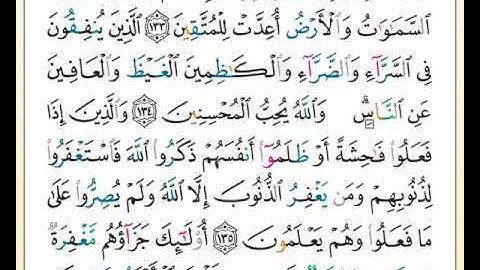 السَّمَٰوَٰتُ وَالْأَرْضُ أُعِدَّتْ لِلْمُتَّقِينَ ١٣٣ الَّذِينَ يُنفِقُونَ
فِي السَّرَّآءِ وَالضَّرَّآءِ وَالْكَٰظِمِينَ الْغَيْظَ وَالْعَافِينَ
عَنِ النَّاسِ ۗ وَاللَّهُ يُحِبُّ الْمُحْسِنِينَ ١٣٤ وَالَّذِينَ إِذَا
فَعَلُوا فَٰحِشَةً أَوْ ظَلَمُوٓا أَنفُسَهُمْ ذَكَرُوا اللَّهَ فَاسْتَغْفَرُوا
لِذُنُوبِهِمْ وَمَن يَغْفِرُ الذُّنُوبَ إِلَّا اللَّهُ وَلَمْ يُصِرُّوا عَلَىٰ
مَا فَعَلُوا وَهُمْ يَعْلَمُونَ ١٣٥ أُو۟لَٰٓئِكَ جَزَآؤُهُم مَّغْفِرَةٌ